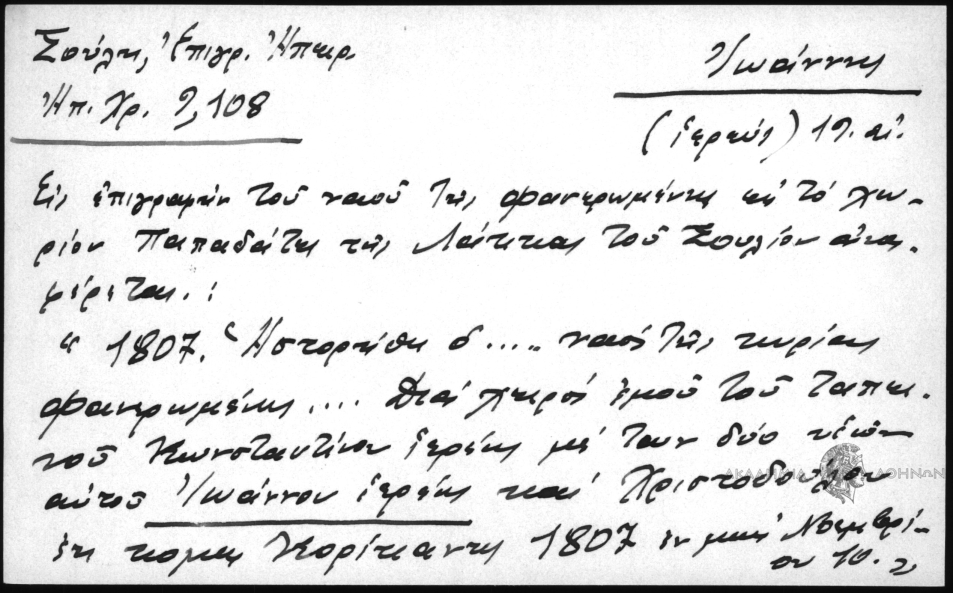 Σούλη, Ἐπιγρ. Ἠπειρ.
Ἠπ. Χρ. 9, 108
Ἰωάννης
(ἱερεύς) 19. αἰ.
Εἰς ἐπιγραφήν τοῦ ναοῦ τῆς Φανερωμένης εἰς τό χω-
ρίον Παπαδάτες τῆς Λάκκας τοῦ Σουλίου ἀνα-
φέρεται:
"1807. Ἱστορήθη ὁ ..... ναός τῆς κυρίας
Φανερωμένης .... Διά χειρός ἐμοῦ τοῦ ταπει-
νοῦ Κωνσταντίνου ἱερέως μέ των δύο υἱῶν
αὐτοῦ Ἰωάννου ἱερέως καί Χριστοδούλου
ἐκ κομης Κορίτιανης 1807 ἐν μηνί Νοεμβρί-
ου 10.
ΑΚΑΔΗΜΙΑ ΑΘΗΝΩΝ